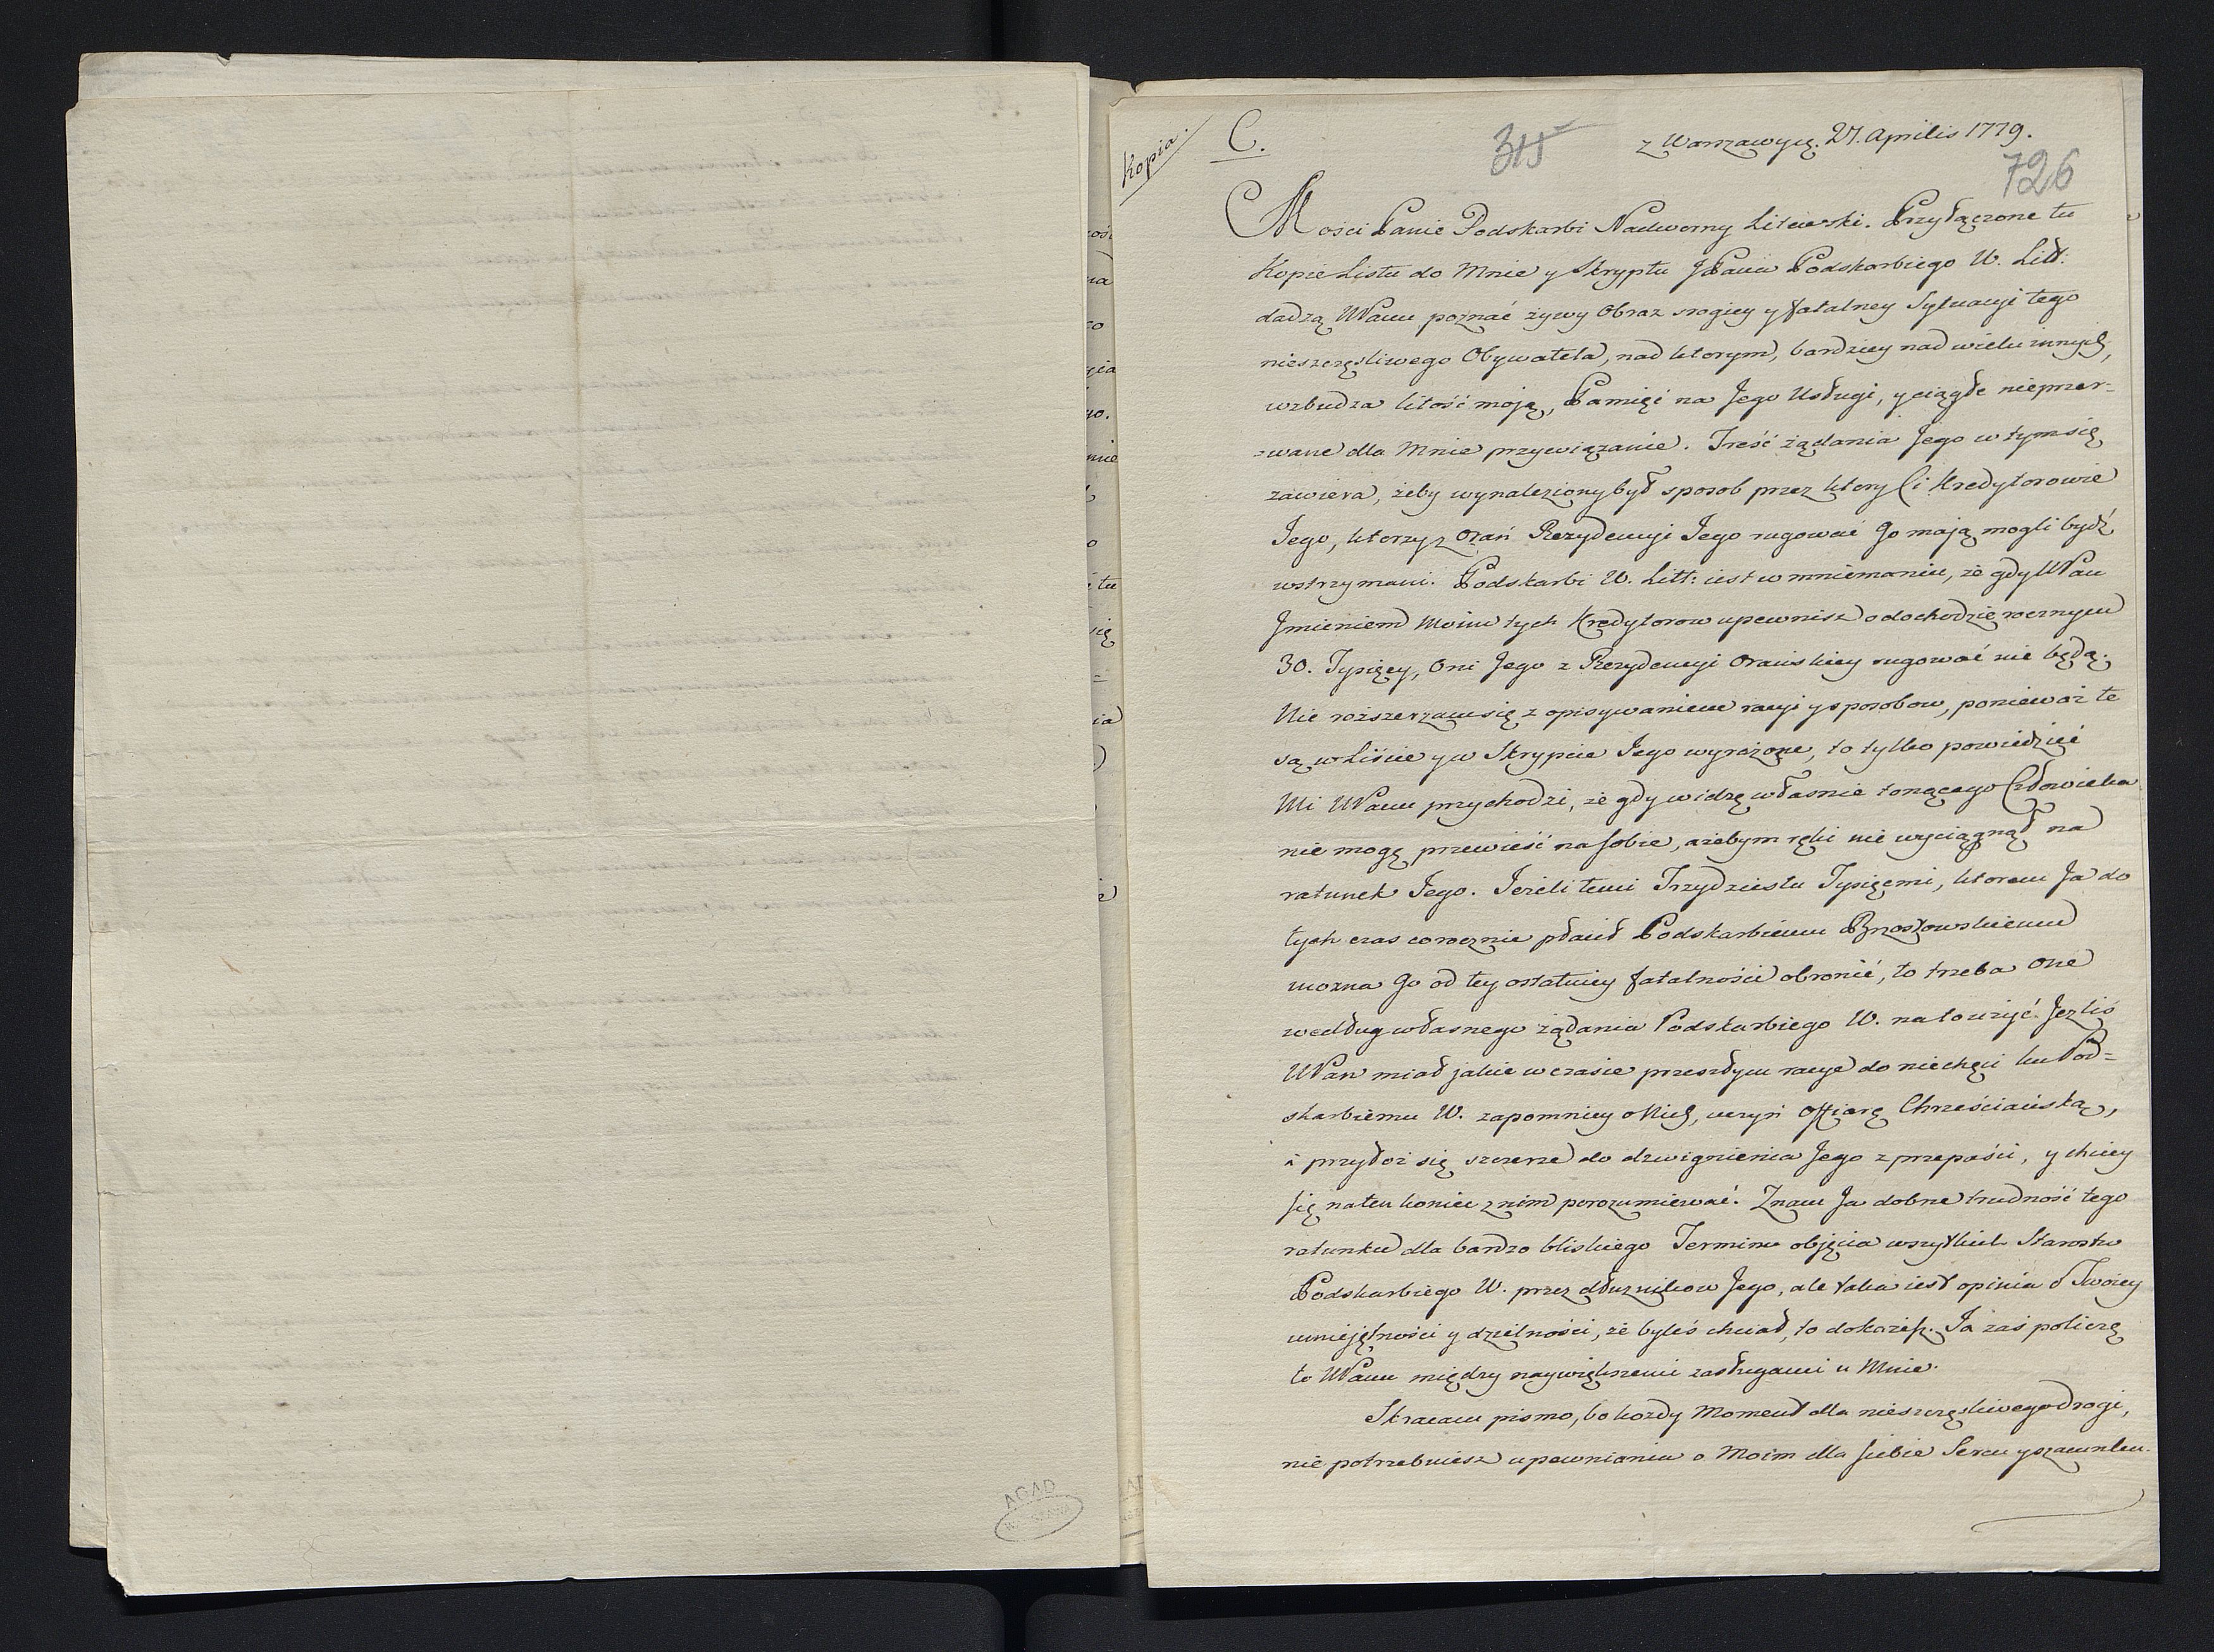 Kopia.
C.
315
z Warszawy d. 27. Aprilis 1779.
726
Mości Panie Podskarbi Nadworny Litewski. Przyłączone tu
Kopie Listu do Mnie y Skryptu JPana Podskarbiego W. Litt:
dadzą WPanu poznać żywy Obraz srogiey y fatalney Sytuacyi tego
nieszczęśliwego Obywatela, nad ktorym, bardziey nad wielu innych,
wzbudza litość moją, Pamięć na Jego Usługi, y ciągłe nieprzer=
=wane dla Mnie przywiązanie. Treść żądania Jego w tym się
zawiera, żeby wynaleziony był sposob przez ktory Ci Kredytorowie
Jego, ktorzy z Oran Rezydencyi Jego rugować Go mają mogli bydź
wstrzymani. Podskarbi W. Litt: iest w mniemaniu, że gdy WPan
Jmieniem Moim tych Kredytorow upewnisz o dochodzie rocznym
30. Tysięcy, Oni Jego z Rezydencyi Orańskiey rugować nie będą.
Nie rozszerzam się z opisywaniem racyi y sposobow, ponieważ te
są w Liście y w Skrypcie Jego wyrażone, to tylko powiedzieć
Mi WPanu przychodzi, że gdy widzę własnie tonącego Człowieka
nie mogę przewieść na sobie, ażebym ręki nie wyciągnął na
ratunek Jego. Jeżeli temi Trzydziestu Tysięcmi, ktorem Ja do
tych czas corocznie płacił Podskarbiemu Brzostowskiemu
można Go od tey ostatniey fatalności obronić, to trzeba One
według własnego żądania Podskarbiego W. na to użyć. Jeżliś
WPan miał jakie w czasie przeszłym racye do niechęci ku Pod=
skarbiemu W. zapomniey o Nich, uczyń Offiarę Chrześciańską,
i przyłoż się szczerze do dzwignienia Jego z przepaści, y chciey
się na ten koniec z nim porozumiewać. Znam Ja dobrze trudność tego
ratunku dla bardzo bliskiego Terminu objęcia wszytkich Starostw
Podskarbiego W. przez dłużnikow Jego, ale taka iest opinia o Twoiey
umiejętności y dzielności, że byleś chciał, to dokażesz. Ja zaś policzę
to WPanu między naywiększemi zasługami u Mnie.
Skracam pismo, bo każdy Moment dla nieszczęśliwego drogi,
nie potrzebuiesz upewnienia o Moim dla siebie Sercu y szacunku.
AGAD